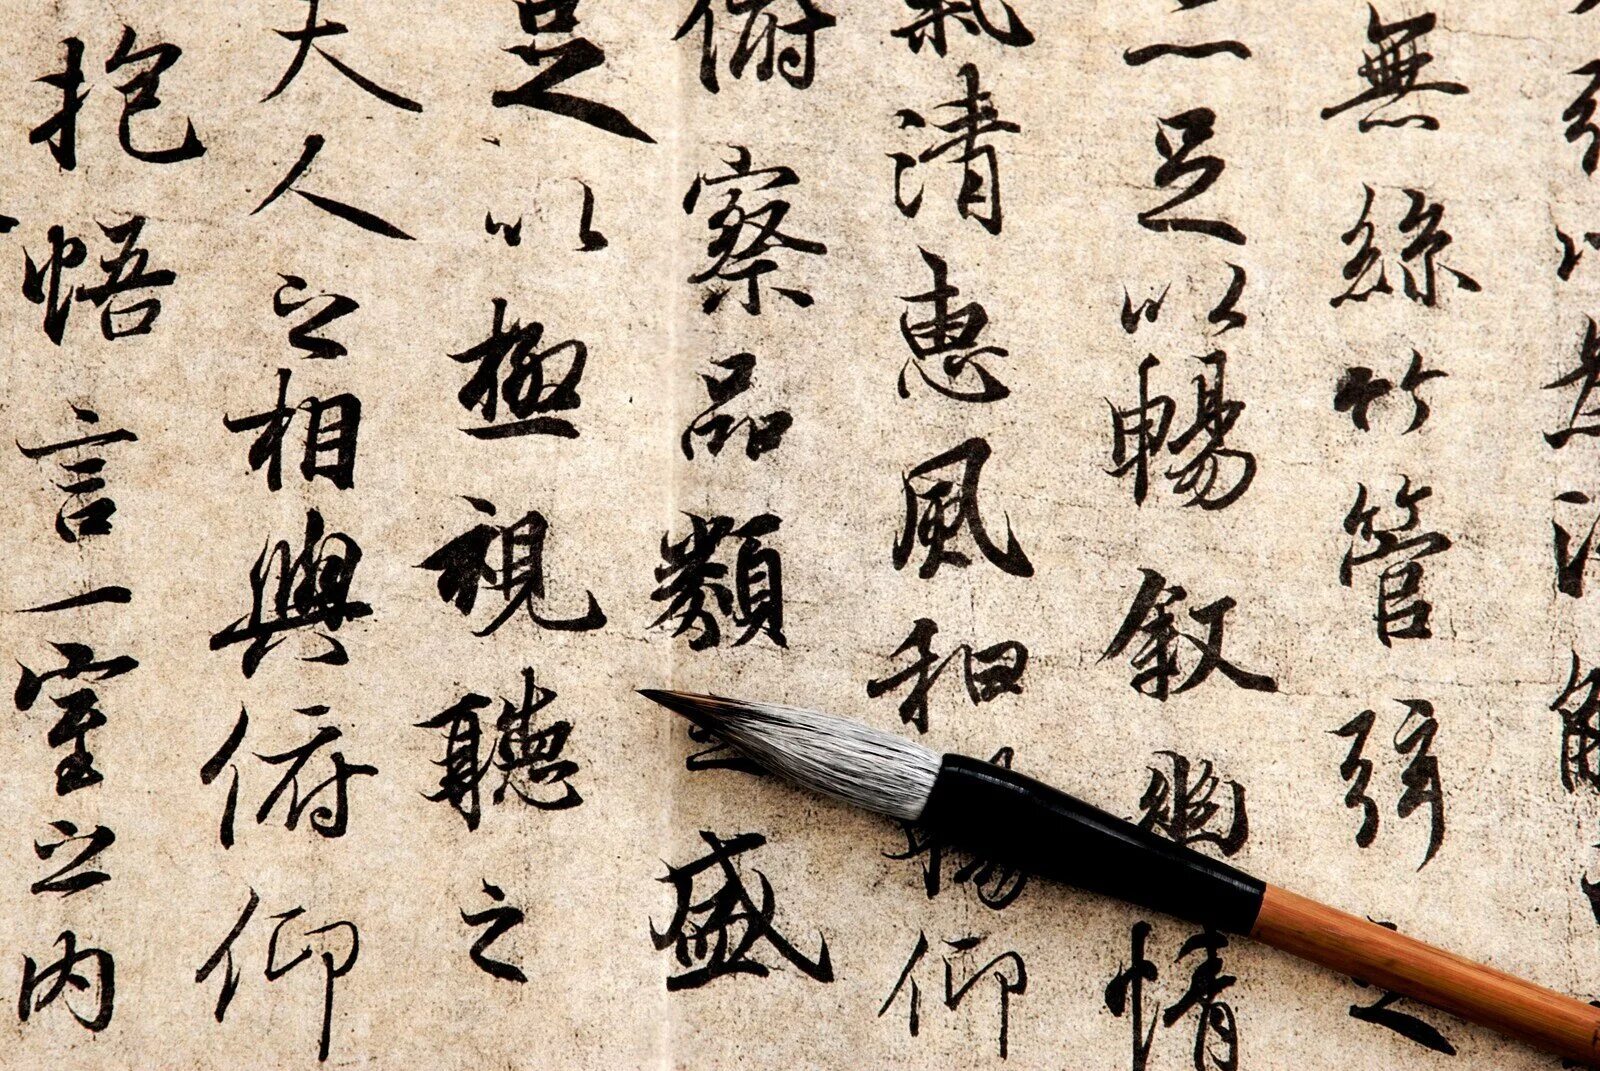 無絲竹管弦之
足以暢叙幽情
氣清惠風和暢仰
俯察品類之盛
足以極視聽之
大人之相與俯仰
抱悟言一室之內